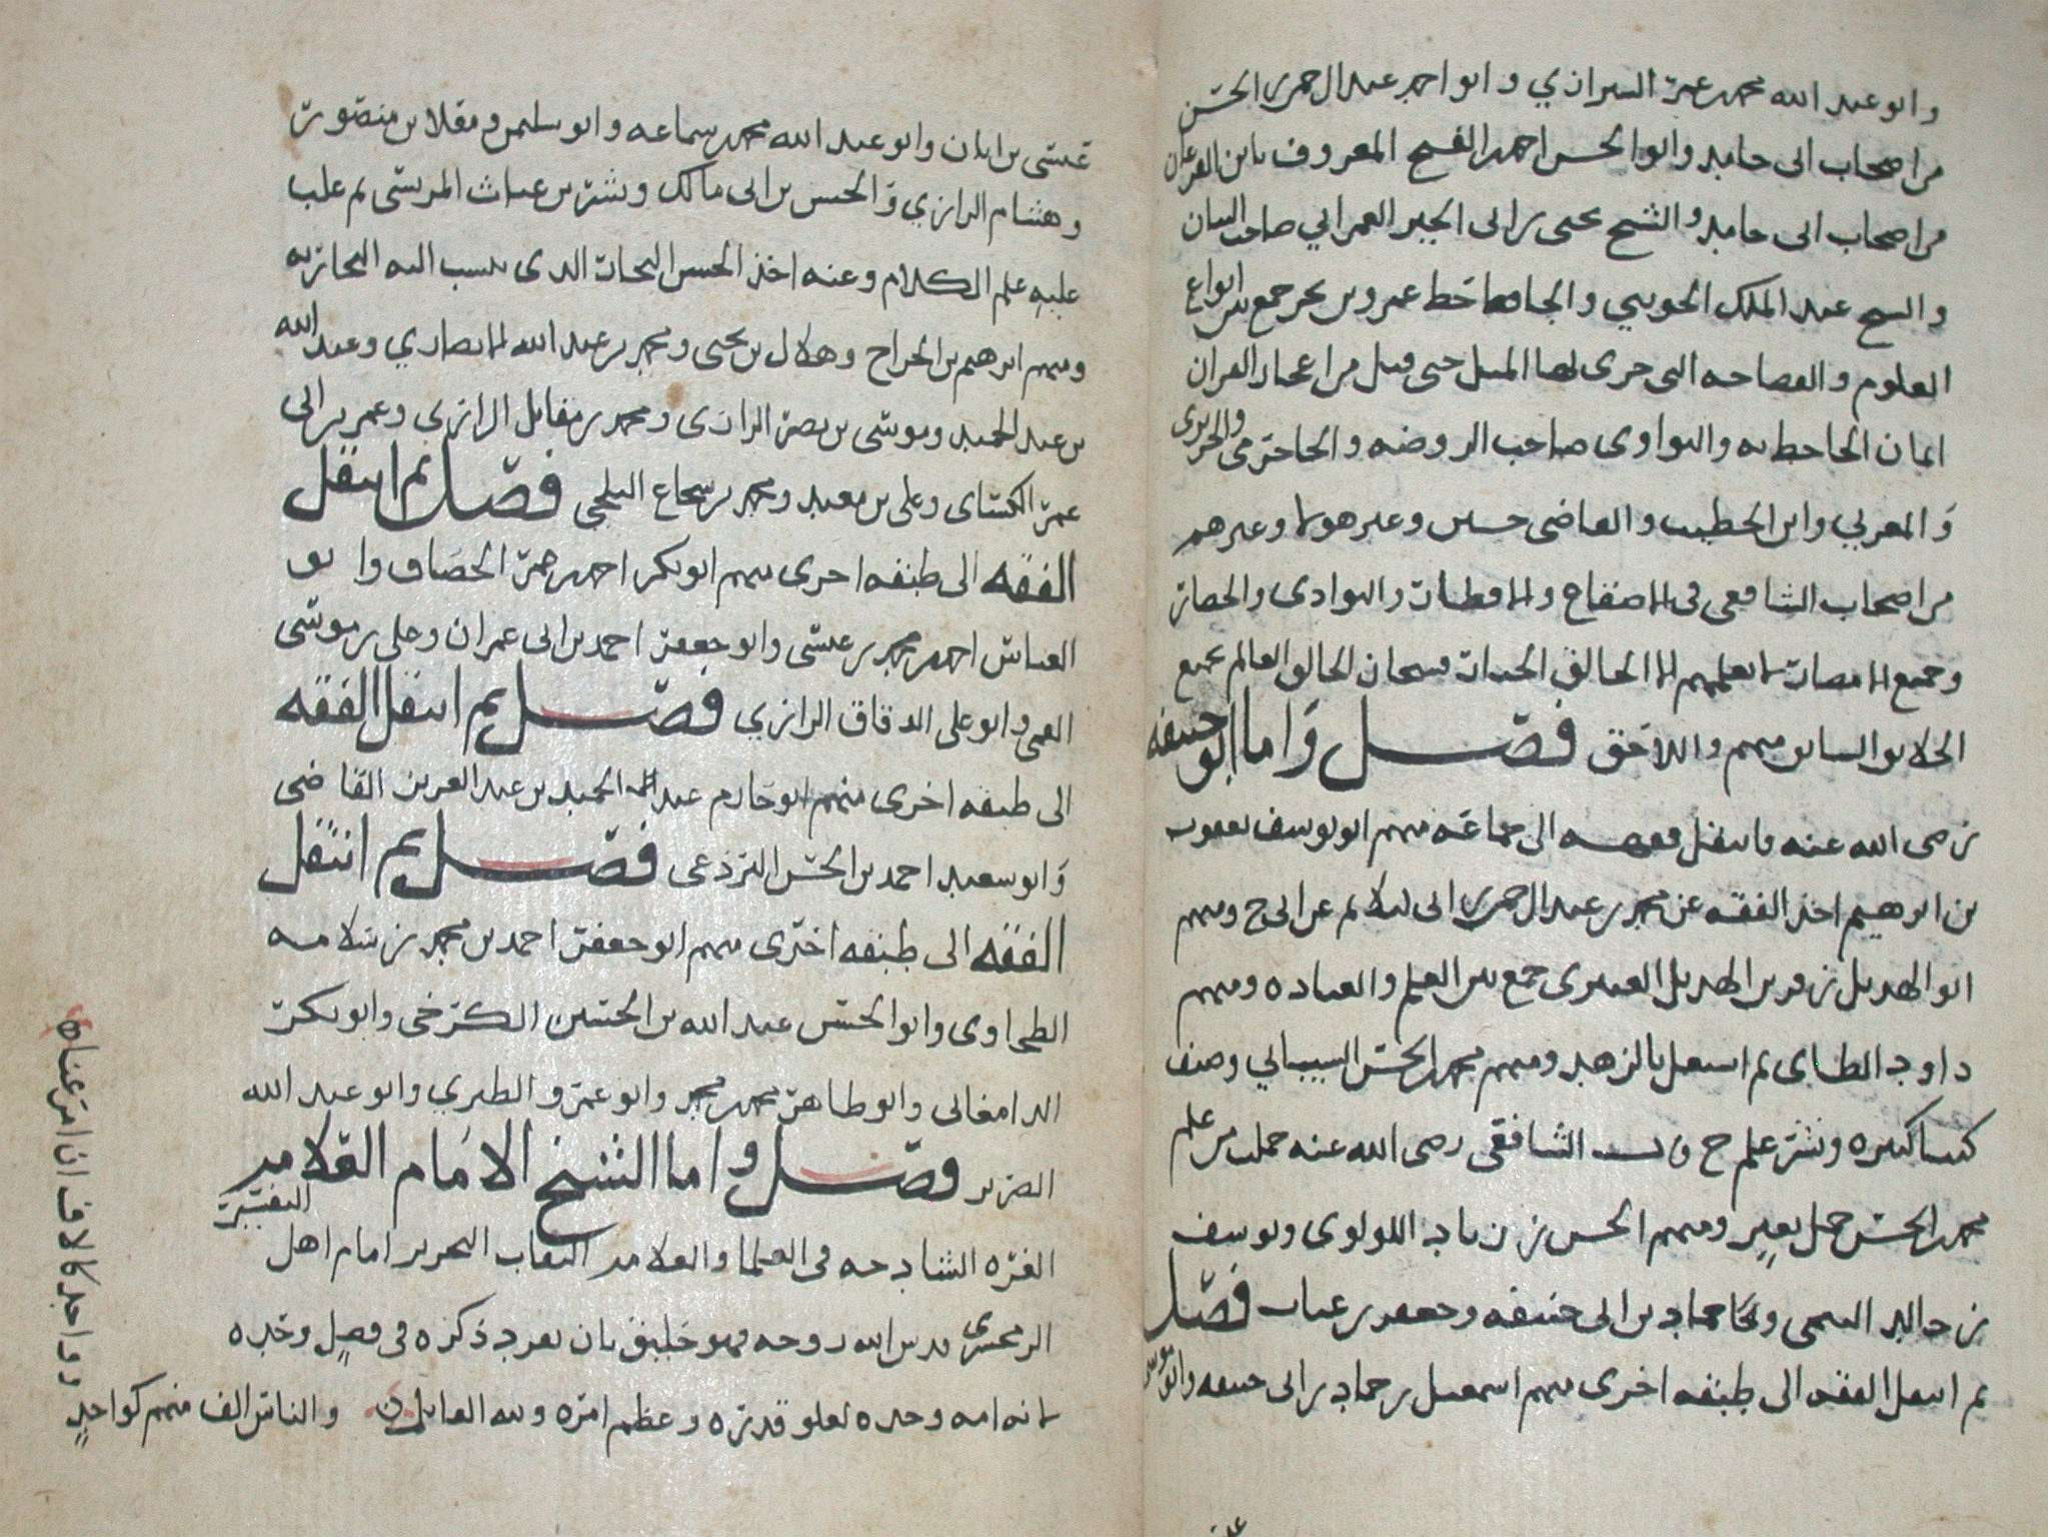 وابو عبد الله محمد بن عمر الشيرازي وابو احمد عبد الرحمن بن الحسن
من اصحاب ابى حامد وابو الحسن احمد بن الفتح المعروف بابن
من اصحاب ابى حامد والشيخ يحيى بن ابى الخير العمراني صاحب البيان
والشيخ عبد الملك الجويني والجاحظ عمرو بن بحر جمع بين انواع
العلوم والفصاحه التى جرى لها المثل حتى قيل من اعجاز القران
ايمان الجاحظ به والنواوى صاحب الروضه والحريرى
والمغربي وابن الخطيب والقاضى حسين وغير هولا وغيرهم
من اصحاب الشافعى فى الاصقاع والاقطار والبوادى والحصار
وجميع الامصار لا يعلمهم الا الخالق الجبار فسبحان الخالق العالم بجميع
الخلايق السابق منهم واللاحق فصل واما ابو حنيفه
رضى الله عنه فانتقل فقهه الى جماعه منهم ابو يوسف يعقوب
بن ابرهيم اخذ الفقه عن محمد بن عبد الرحمن بن ابى ليلا ثم عن ابى ح ومنهم
ابو الهذيل زفر بن الهذيل العنبرى جمع بين العلم والعباده ومنهم
داود الطاى ثم اشتغل بالزهد ومنهم محمد بن الحسن الشيباني وصنف
كتبا كثيره ونشر علم ح قال الشافعى رضى الله عنه حملت من علم
محمد بن الحسن حمل بعير ومنهم الحسن بن زياد اللولوى ويوسف
بن خالد السمتى وحماد بن ابى حنيفه وحفص بن غياث فصل
ثم انتقل الفقه الى طبقه اخرى منهم اسمعيل بن حماد بن ابى حنيفه وابو موسى
عيسى بن ابان وابو عبد الله محمد بن سماعه وابو سليمن ومعلا بن منصور
وهشام الرازي والحسن بن ابى مالك وبشر بن غياث المريسى ثم غلب
عليه علم الكلام وعنه اخذ الحسن النجار الذى ينسب اليه النجاريه
ومنهم ابرهيم بن الجراح وهلال بن يحيى ومحمد بن عبد الله الانصاري وعبد الله
بن عبد المجيد وموسى بن نصر الرازى ومحمد بن مقاتل الرازى وعمر بن ابى
عمر الكسائى وعلى بن معبد ومحمد بن شجاع الثلجى فصل ثم انتقل
الفقه الى طبقه اخرى منهم ابو بكر احمد بن عمر الخصاف وابو
العباس احمد بن محمد بن عيسى وابو جعفر احمد بن ابى عمران وعلى بن موسى
القمى وابو على الدقاق الرازي فصل ثم انتقل الفقه
الى طبقه اخرى منهم ابو خازم عبد الحميد بن عبد العزيز القاضى
وابو سعيد احمد بن الحسن البرذعى فصل ثم انتقل
الفقه الى طبقه اخرى منهم ابو جعفر احمد بن محمد بن سلامه
الطحاوى وابو الحسن عبد الله بن الحسين الكرخى وابو بكر
الدامغانى وابو طاهر محمد بن محمد وابو عمرو الطبري وابو عبد الله
الضرير فصل واما الشيخ الامام العلامه
الغره الشادخه فى العلما والعلامه النقاب النحرير امام اهل التفسير
الزمخشرى قدس الله روحه فهو خليق بان يفرد ذكره فى فصل وحده
لانه امه وحده لعلو قدره وعظم امره ولله القايل والناس الف منهم كواحد
وواحد كالالف ان امر عناه